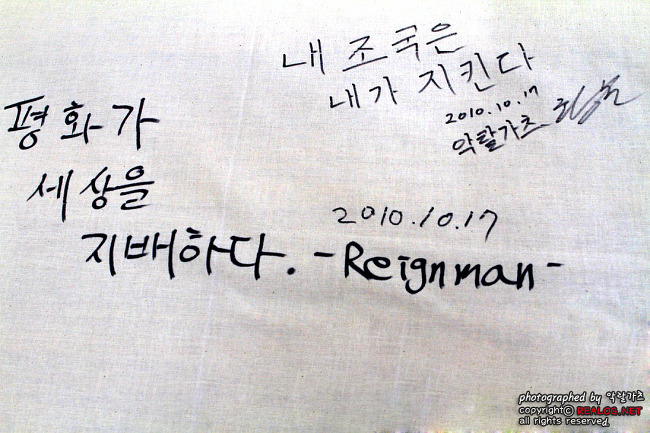 내 조국은
내가 지킨다
2010.10.17
악랄가츠
평화가
세상을
지배하다.
2010.10.17
-Reignman-
photographed by 악랄가츠
copyright© REALOG.NET
all rights reserved.